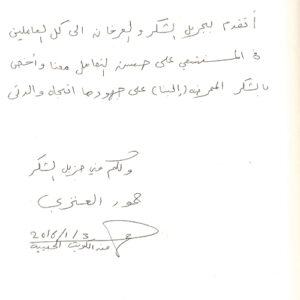 أتقدم بجزيل الشكر والعرفان الى كل العاملين
في المستشفى على حسن التعامل معنا وأخص
بالشكر الممرضه (إلينا) على جهودها اتجاه والدتي
ولكم مني جزيل الشكر
العنزي
2016/1/3
من الكويت الحبيبة